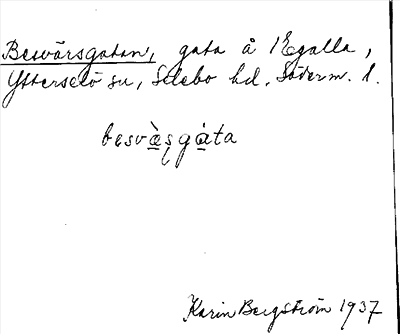 Besvärsgatan, gata å 1 Egalla,
Ytterselö sn, Selebo hd. Söderm. l.
besvæ̀ʂgàta
Karin Bergström 1937